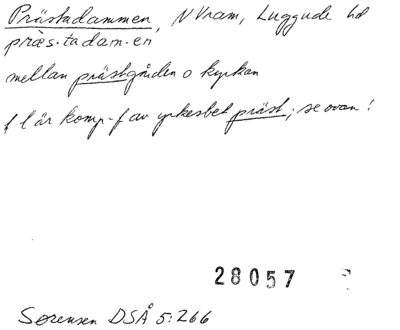 Prästadammen, N Vram, Luggude hd
præs.tadam.en
mellan prästgården o kyrkan
f l är komp-f av yrkesbet präst; se ovan!
28057
Sørensen DSÅ 5:266